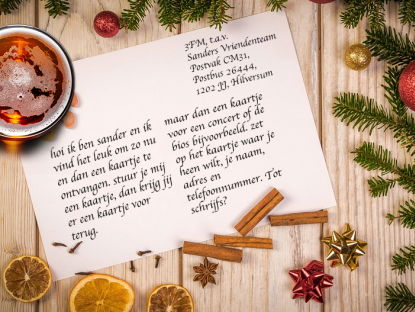 3FM, t.a.v.
Sanders Vriendenteam
Postvak CM31,
Postbus 26444,
1202 JJ, Hilversum
hoi ik ben sander en ik
vind het leuk om zo nu
en dan een kaartje te
ontvangen. stuur je mij
een kaartje, dan krijg jij
er een kaartje voor
terug.
maar dan een kaartje
voor een concert of de
bios bijvoorbeeld. zet
op het kaartje waar je
heen wilt, je naam,
adres en
telefoonnummer. Tot
schrijfs?